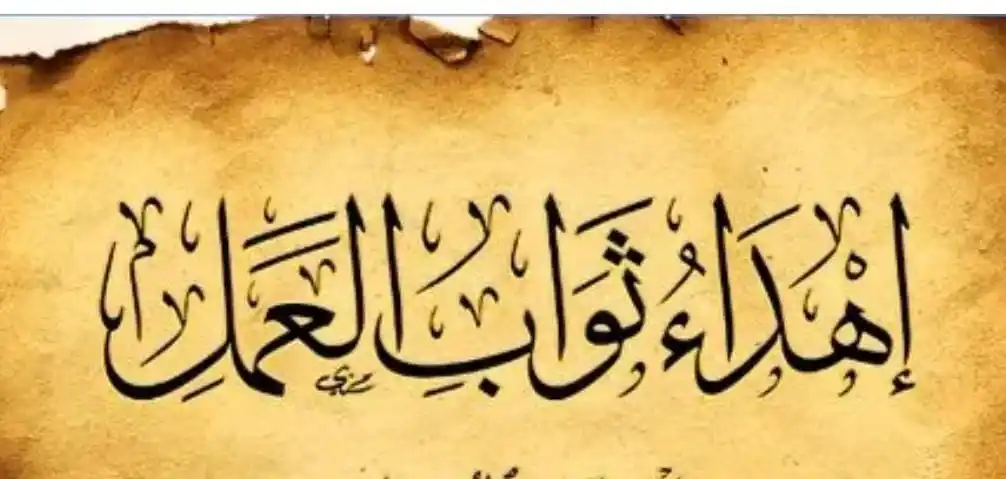 إِهْدَاءُ ثَوَابِ الْعَمَلِ